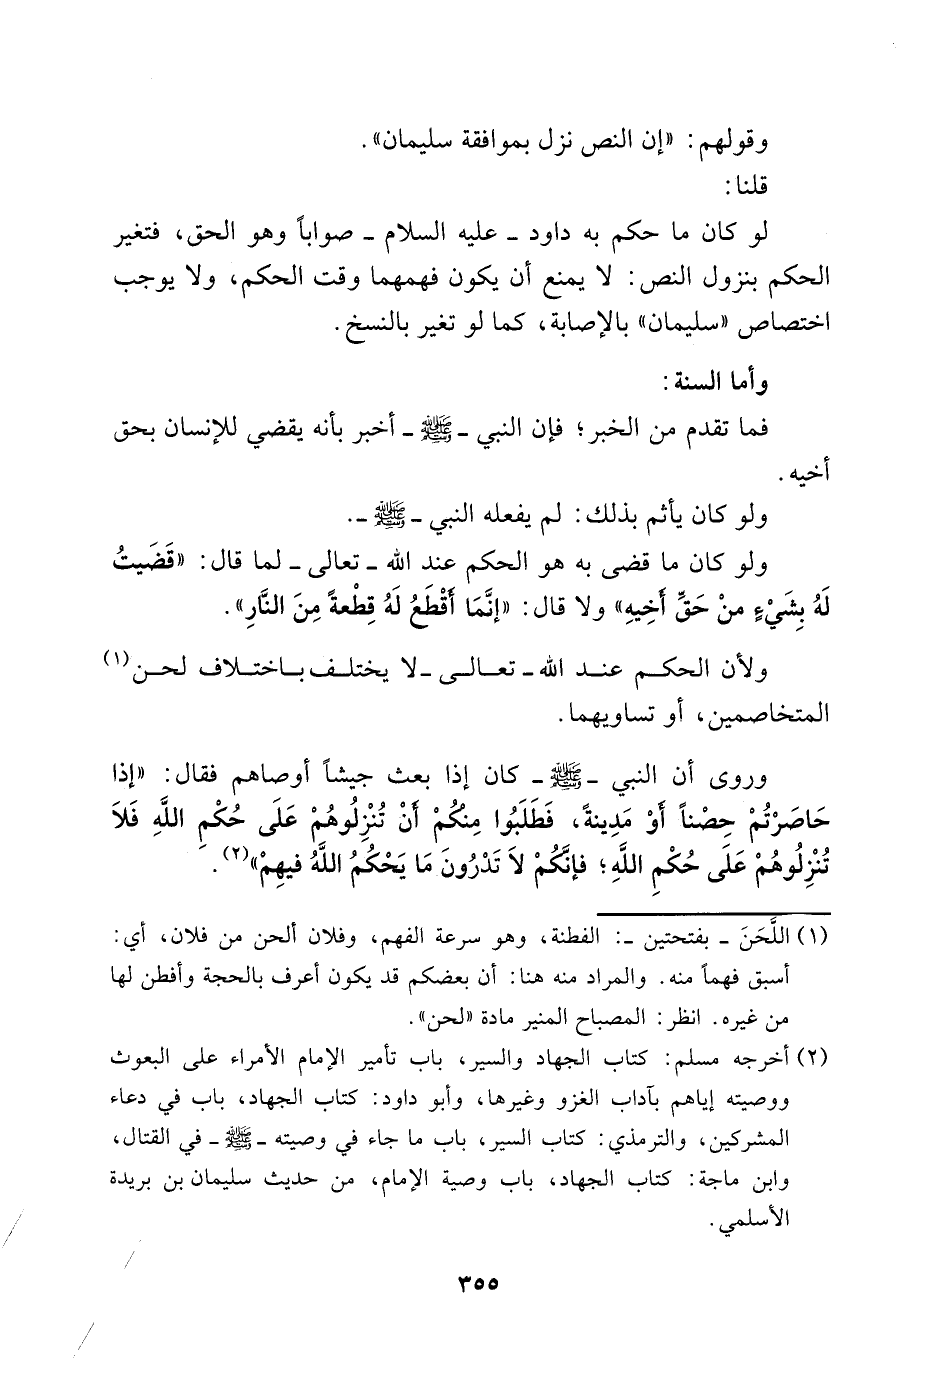 وقولهم: «إن النص نزل بموافقة سليمان».
قلنا:
لو كان ما حكم به داود ـ عليه السلام ـ صواباً وهو الحق، فتغير
الحكم بنزول النص: لا يمنع أن يكون فهمهما وقت الحكم، ولا يوجب
اختصاص «سليمان» بالإصابة، كما لو تغير بالنسخ.
وأما السنة:
فما تقدم من الخبر؛ فإن النبي ـ ﷺ ـ أخبر بأنه يقضي للإنسان بحق
أخيه.
ولو كان يأثم بذلك: لم يفعله النبي ـ ﷺ ـ.
ولو كان ما قضى به هو الحكم عند الله ـ تعالى ـ لما قال: «قَضَيتُ
لَهُ بِشَيْءٍ منْ حَقِّ أَخِيهِ» ولا قال: «إنَّمَا أَقْطَعُ لَهُ قِطْعةً مِنَ النَّارِ».
ولأن الحكم عند الله ـ تعالى ـ لا يختلف باختلاف لحن(١)
المتخاصمين، أو تساويهما.
وروى أن النبي ـ ﷺ ـ كان إذا بعث جيشاً أوصاهم فقال: «إذا
حَاصَرْتُمْ حِصْناً أَوْ مَدِينةً، فَطَلَبُوا مِنْكُمْ أَنْ تُنْزِلُوهُمْ عَلَى حُكْمِ اللَّهِ فَلاَ
تُنْزِلُوهُمْ عَلَى حُكْمِ اللَّهِ؛ فإنَّكُمْ لاَ تَدْرُونَ مَا يَحْكُمُ اللَّهُ فيهِمْ»(٢).
(١) اللَّحَنَ ـ بفتحتين ـ: الفطنة، وهو سرعة الفهم، وفلان ألحن من فلان، أي:
أسبق فهماً منه. والمراد منه هنا: أن بعضكم قد يكون أعرف بالحجة وأفطن لها
من غيره. انظر: المصباح المنير مادة «لحن».
(٢) أخرجه مسلم: كتاب الجهاد والسير، باب تأمير الإمام الأمراء على البعوث
ووصيته إياهم بآداب الغزو وغيرها، وأبو داود: كتاب الجهاد، باب في دعاء
المشركين، والترمذي: كتاب السير، باب ما جاء في وصيته ـ ﷺ ـ في القتال،
وابن ماجة: كتاب الجهاد، باب وصية الإمام، من حديث سليمان بن بريدة
الأسلمي.
٣٥٥